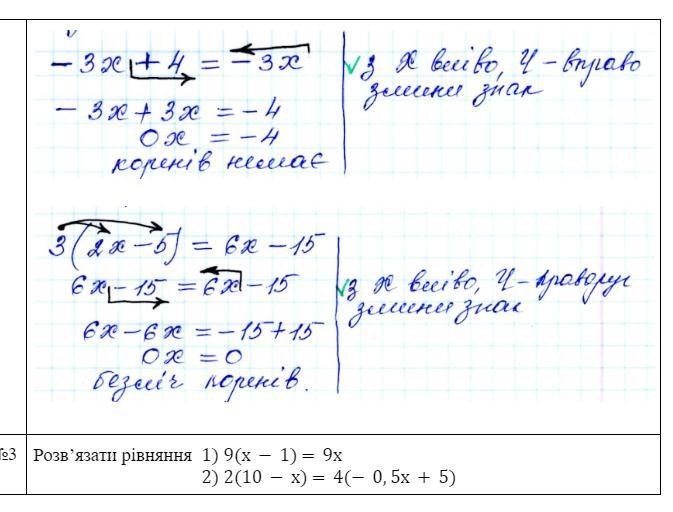 - 3x + 4 = - 3x
з X вліво, Ч - вправо
зміни знак
- 3x + 3x = - 4
0x = - 4
коренів немає
3(2x - 5) = 6x - 15
6x - 15 = 6x - 15
з X вліво, Ч - праворуч
зміни знак
6x - 6x = - 15 + 15
0x = 0
безліч коренів.
№3 Розв’язати рівняння 1) 9(x − 1) = 9x
2) 2(10 − x) = 4(− 0,5x + 5)